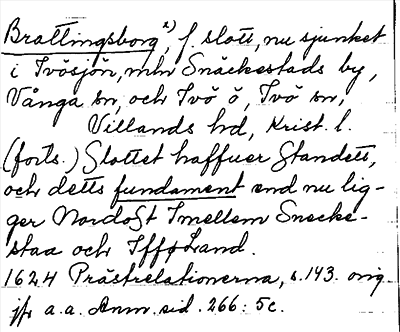 Brattingsborg 2), f. slott, nu sjunket
i Ivösjön, mln Snäckestads by,
Vånga sn, och Ivö ö, Ivö sn,
Villands hd, Krist. l.
(forts.) Slottet haffuer Standett,
och detts fundament end nu lig-
ger NordoSt Imellem Snecke-
staa och IfføLand.
1624 Prästrelationerna, s. 143. orig
jfr a.a. Anm. sid. 266: 5c.